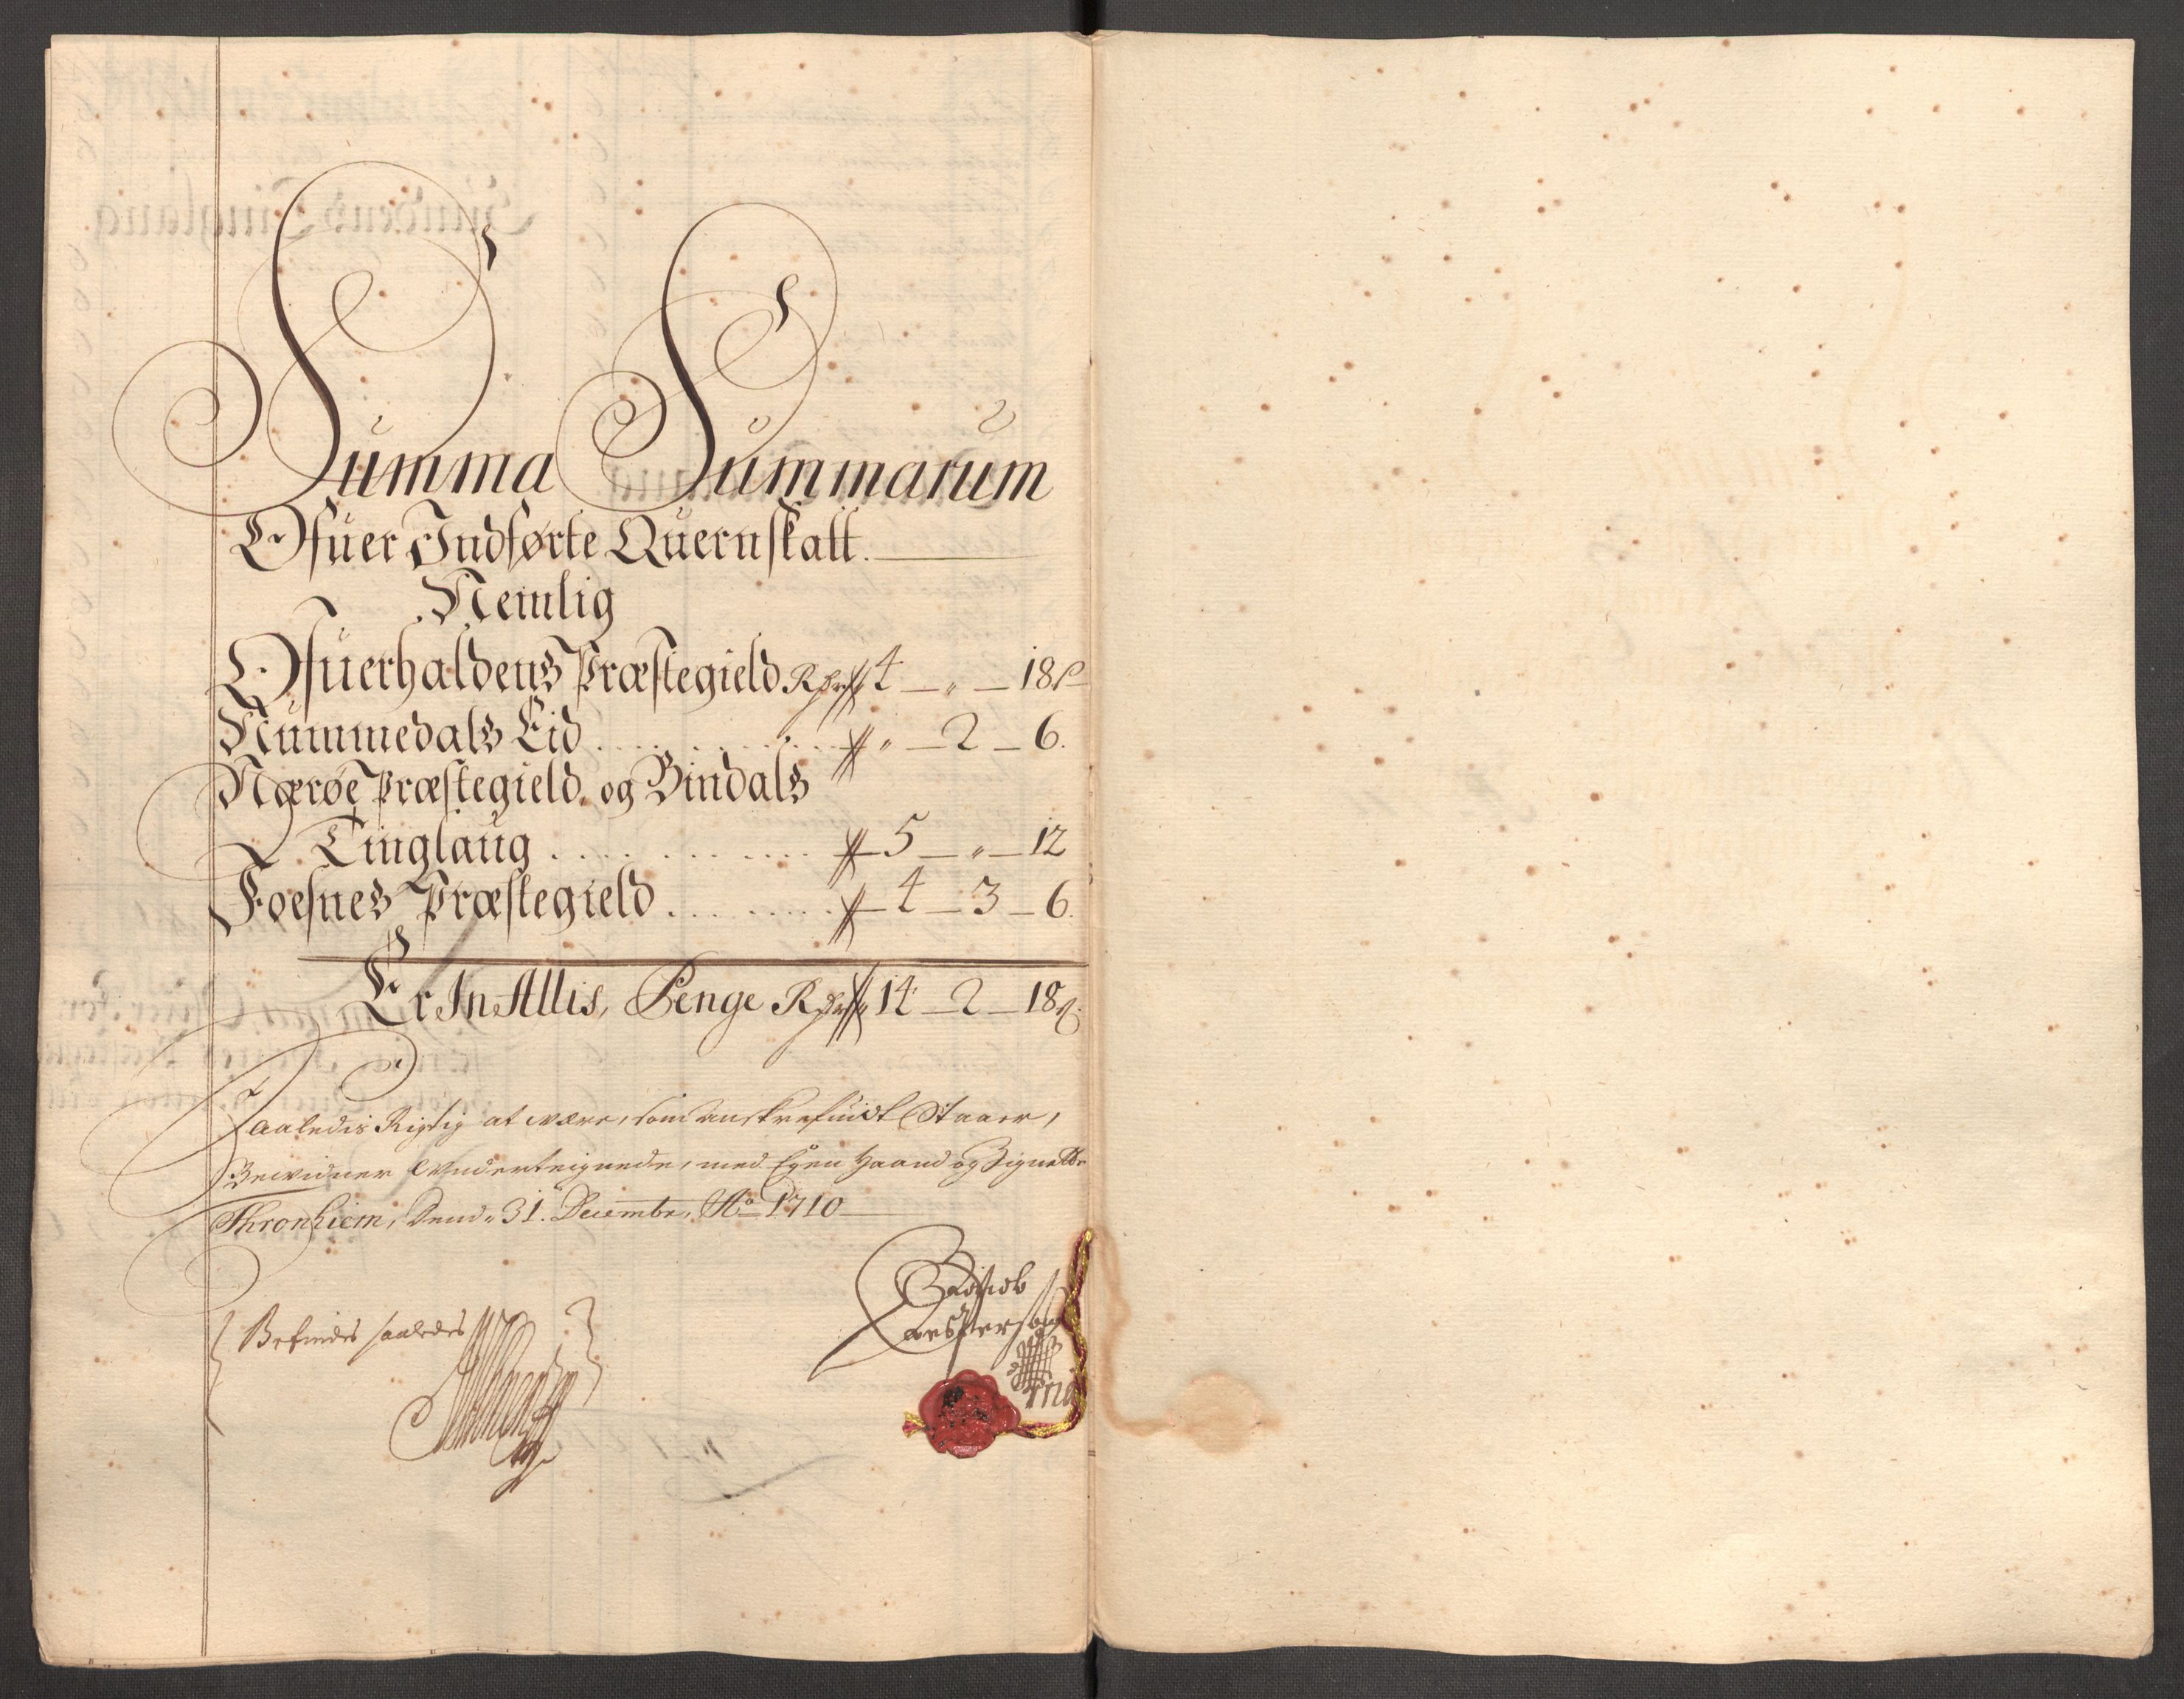 Summa Summarum
Ofuer Indførte Quernskatt.
Nemlig
Ofuerhaldens Præstegield Rdr 4 — " — 18 s
Nummedals Eid . . . . . . . " — 2 — 6.
Nærøe Præstegield, og Bindals
Tinglaug . . . . . . . . . 5 — " — 12
Foesnes Præstegield . . . . . . . 4 — 3 — 6.
Er In Allis, Penge Rdr 14 — 2 — 18 s.
Saaledis Rigtig at være, som anskrefuidt Staaer,
Bewidner Underteignede, med Egen Haand og Zignette
Thronhiem, Dend. 31. Decembr. Ao 1710
Befindes saaledes